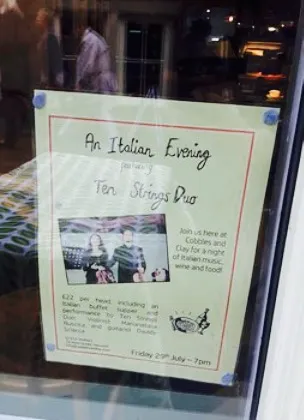 An Italian Evening
featuring
Ten Strings Duo
Join us here at
Cobbles and
Clay for a night
of Italian music,
wine and food!
£22 per head, including an
Italian buffet supper and
performance by Ten Strings
Duo: violinist
and guitarist Davide
Sciacca
Friday 29th July - 7pm